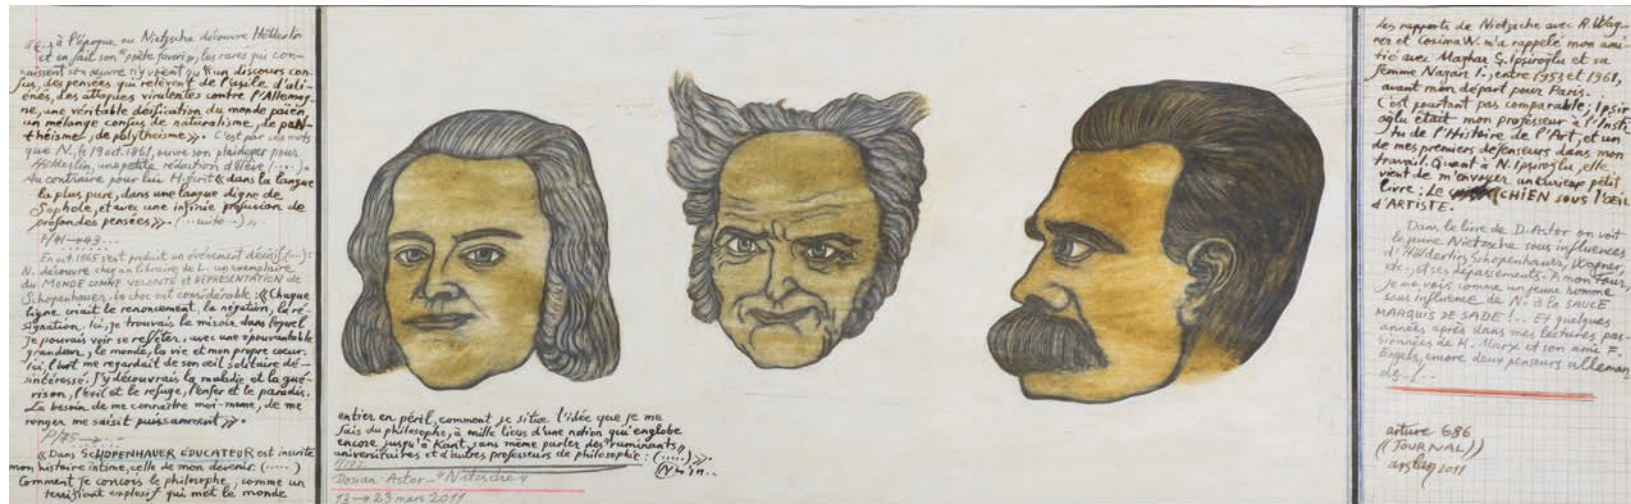 «(...) à l'époque ou Nietzsche découvre Hölderlin
et en fait son "poète favori", les rares qui con-
naissent son œuvre n'y voient qu'«un discours con-
fus, des pensées qui relèvent de l'asile d'ali-
énés, des attaques virulentes contre l'Allemag-
ne, une véritable déification du monde païen
un mélange confus de naturalisme, de paN-
théisme, de polythéisme». C'est par ces mots
que N., le 19 oct. 1861, ouvre son plaidoyer pour
Hölderlin, une petite rédaction d'élève (...).
Au contraire pour lui H. écrit «dans la langue
la plus pure, dans une langue digne de
Sophole, et avec une infinie profusion de
profondes pensées». (...suite...)
P/41→43...
En oct. 1865 s'est produit un événement décisif (...):
N. découvre chez un libraire de L. un exemplaire
du MONDE COMME VOLONTE et REPRESENTATION de
Schopenhauer. Le choc est considérable: «Chaque
ligne criait le renoncement, la négation, la ré-
signation. Ici, je trouvais le miroir dans lequel
je pouvais voir se refléter, avec une épouvantable
grandeur, le monde, la vie et mon propre cœur.
Ici, l'art me regardait de son œil solitaire dé-
sintéressé. J'y découvrais la maladie et la gué-
rison, l'éxil et le refuge, l'enfer et le paradis.
Le besoin de me connaître moi-même, de me
ronger me saisit puissamment».
P/75→...
«Dans SCHOPENHAUER EDUCATEUR est inscrite
mon histoire intime, celle de mon devenir. (.....)
Comment je conçois le philosophe, comme un
terrifiant explosif qui met le monde
entier en péril, comment je situe l'idée que je me
fais du philosophe, à mille lieus d'une notion qui englobe
encore jusqu'à Kant, sans même parler des "ruminants"
universitaires et d'autres professeurs de philosophie: (.....)».
Dorian Astor – "Nietzsche"
13→23 mars 2011
les rapports de Nietzsche avec R. Wag-
ner et Cosima W. m'a rappelé mon ami-
tié avec Mazhar Ş. Ipsiroğlu et sa
femme Nazan I., entre 1953 et 1961,
avant mon départ pour Paris.
C'est pourtant pas comparable; Ipsir
oğlu était mon professeur à l'Insti-
tu de l'Histoire de l'Art, et un
de mes premiers defenseurs dans mon
travail. Quant à N. Ipsiroğlu, elle
vient de m'envoyer un curieux petit
livre: Le CHIEN sous l'œil
d'ARTISTE.
Dans le livre de D. Astor on voit
le jeune Nietzsche sous influences
d'Hölderlin, Schopenhauer, Wagner,
etc., et ses dépassements. A mon tour,
je me vois comme un jeune homme
sous influence de N. à la SAUCE
MARQUIS DE SADE!.. Et quelques
années après dans mes lectures pas-
sionnées de K. Marx et son ami F.
Engels, encore deux penseurs alleman
ds../..
arture 686
((JOURNAL))
arslan 2011